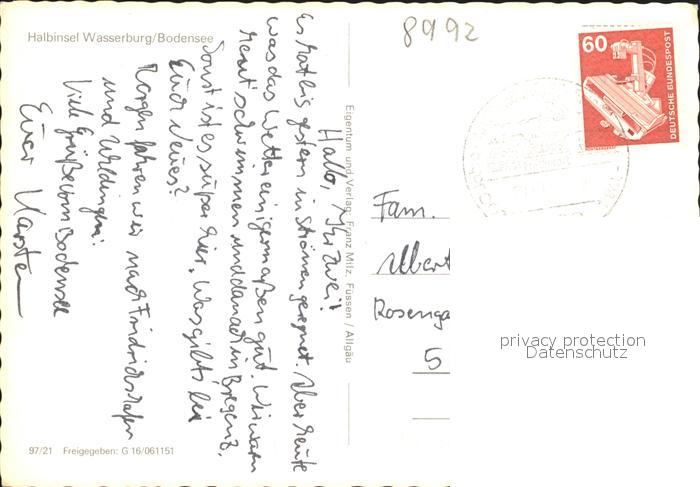 Halbinsel Wasserburg/Bodensee
8992
60
DEUTSCHE BUNDESPOST
Hallo, Ihr Zwei!
Es hat bis gestern in Strömen geregnet. Aber heute
war das Wetter einigermaßen gut. Wir waren
heut' schwimmen und danach in Bregenz.
Sonst ist es super hier. Was gibt's bei
Euch Neues?
Morgen fahren wir nach Friedrichshafen
und
Viele Grüße vom Bodensee
Euer Karsten
Eigentum und Verlag: Franz Milz, Füssen / Allgäu
Fam.
Albert
Rosenga
5
privacy protection
Datenschutz
97/21 Freigegeben: G 16/061151